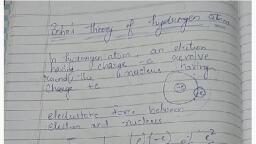 Bohr's theory of hydrogen atom
In hydrogen atom, an electron
having charge -e revolve
round the nucleus having
charge +e
electrostatic force between
electron and nucleus